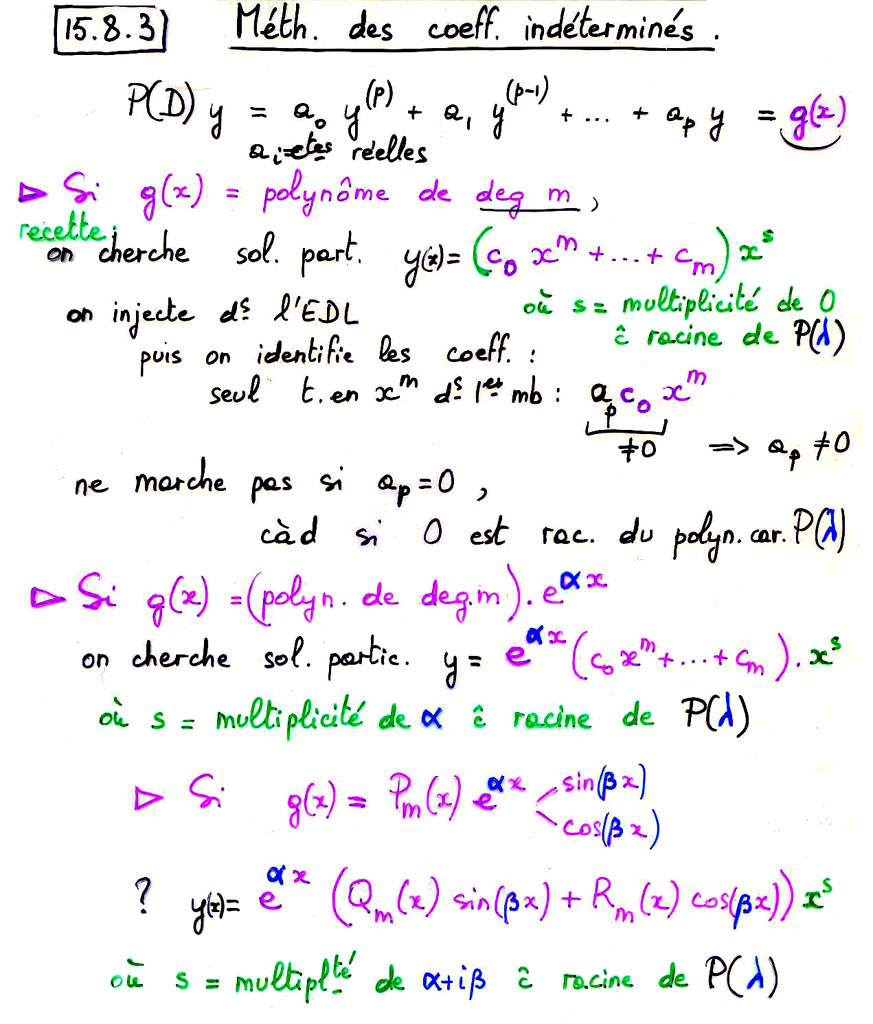 15.8.3 Méth. des coeff. indéterminés.
P(D) y = a₀ y⁽ᵖ⁾ + a₁ y⁽ᵖ⁻¹⁾ + ... + aₚ y = g(x)
aᵢ = ctes réelles
▷ Si g(x) = polynôme de deg m,
recette:
on cherche sol. part. y(x) = (c₀ xᵐ + ... + cₘ) xˢ
on injecte ds l'EDL où s = multiplicité de 0
ĉ racine de P(λ)
puis on identifie les coeff. :
seul t. en xᵐ ds 1er mb : aₚ c₀ xᵐ
≠0 => aₚ ≠ 0
ne marche pas si aₚ = 0 ,
càd si 0 est rac. du polyn. car. P(λ)
▷ Si g(x) = (polyn. de deg. m) . e^αx
on cherche sol. partic. y = e^αx (c₀ xᵐ + ... + cₘ) . xˢ
où s = multiplicité de α ĉ racine de P(λ)
▷ Si g(x) = Pₘ(x) e^αx < sin(βx)
cos(βx)
? y(x) = e^αx (Qₘ(x) sin(βx) + Rₘ(x) cos(βx)) xˢ
où s = multiplté de α+iβ ĉ racine de P(λ)